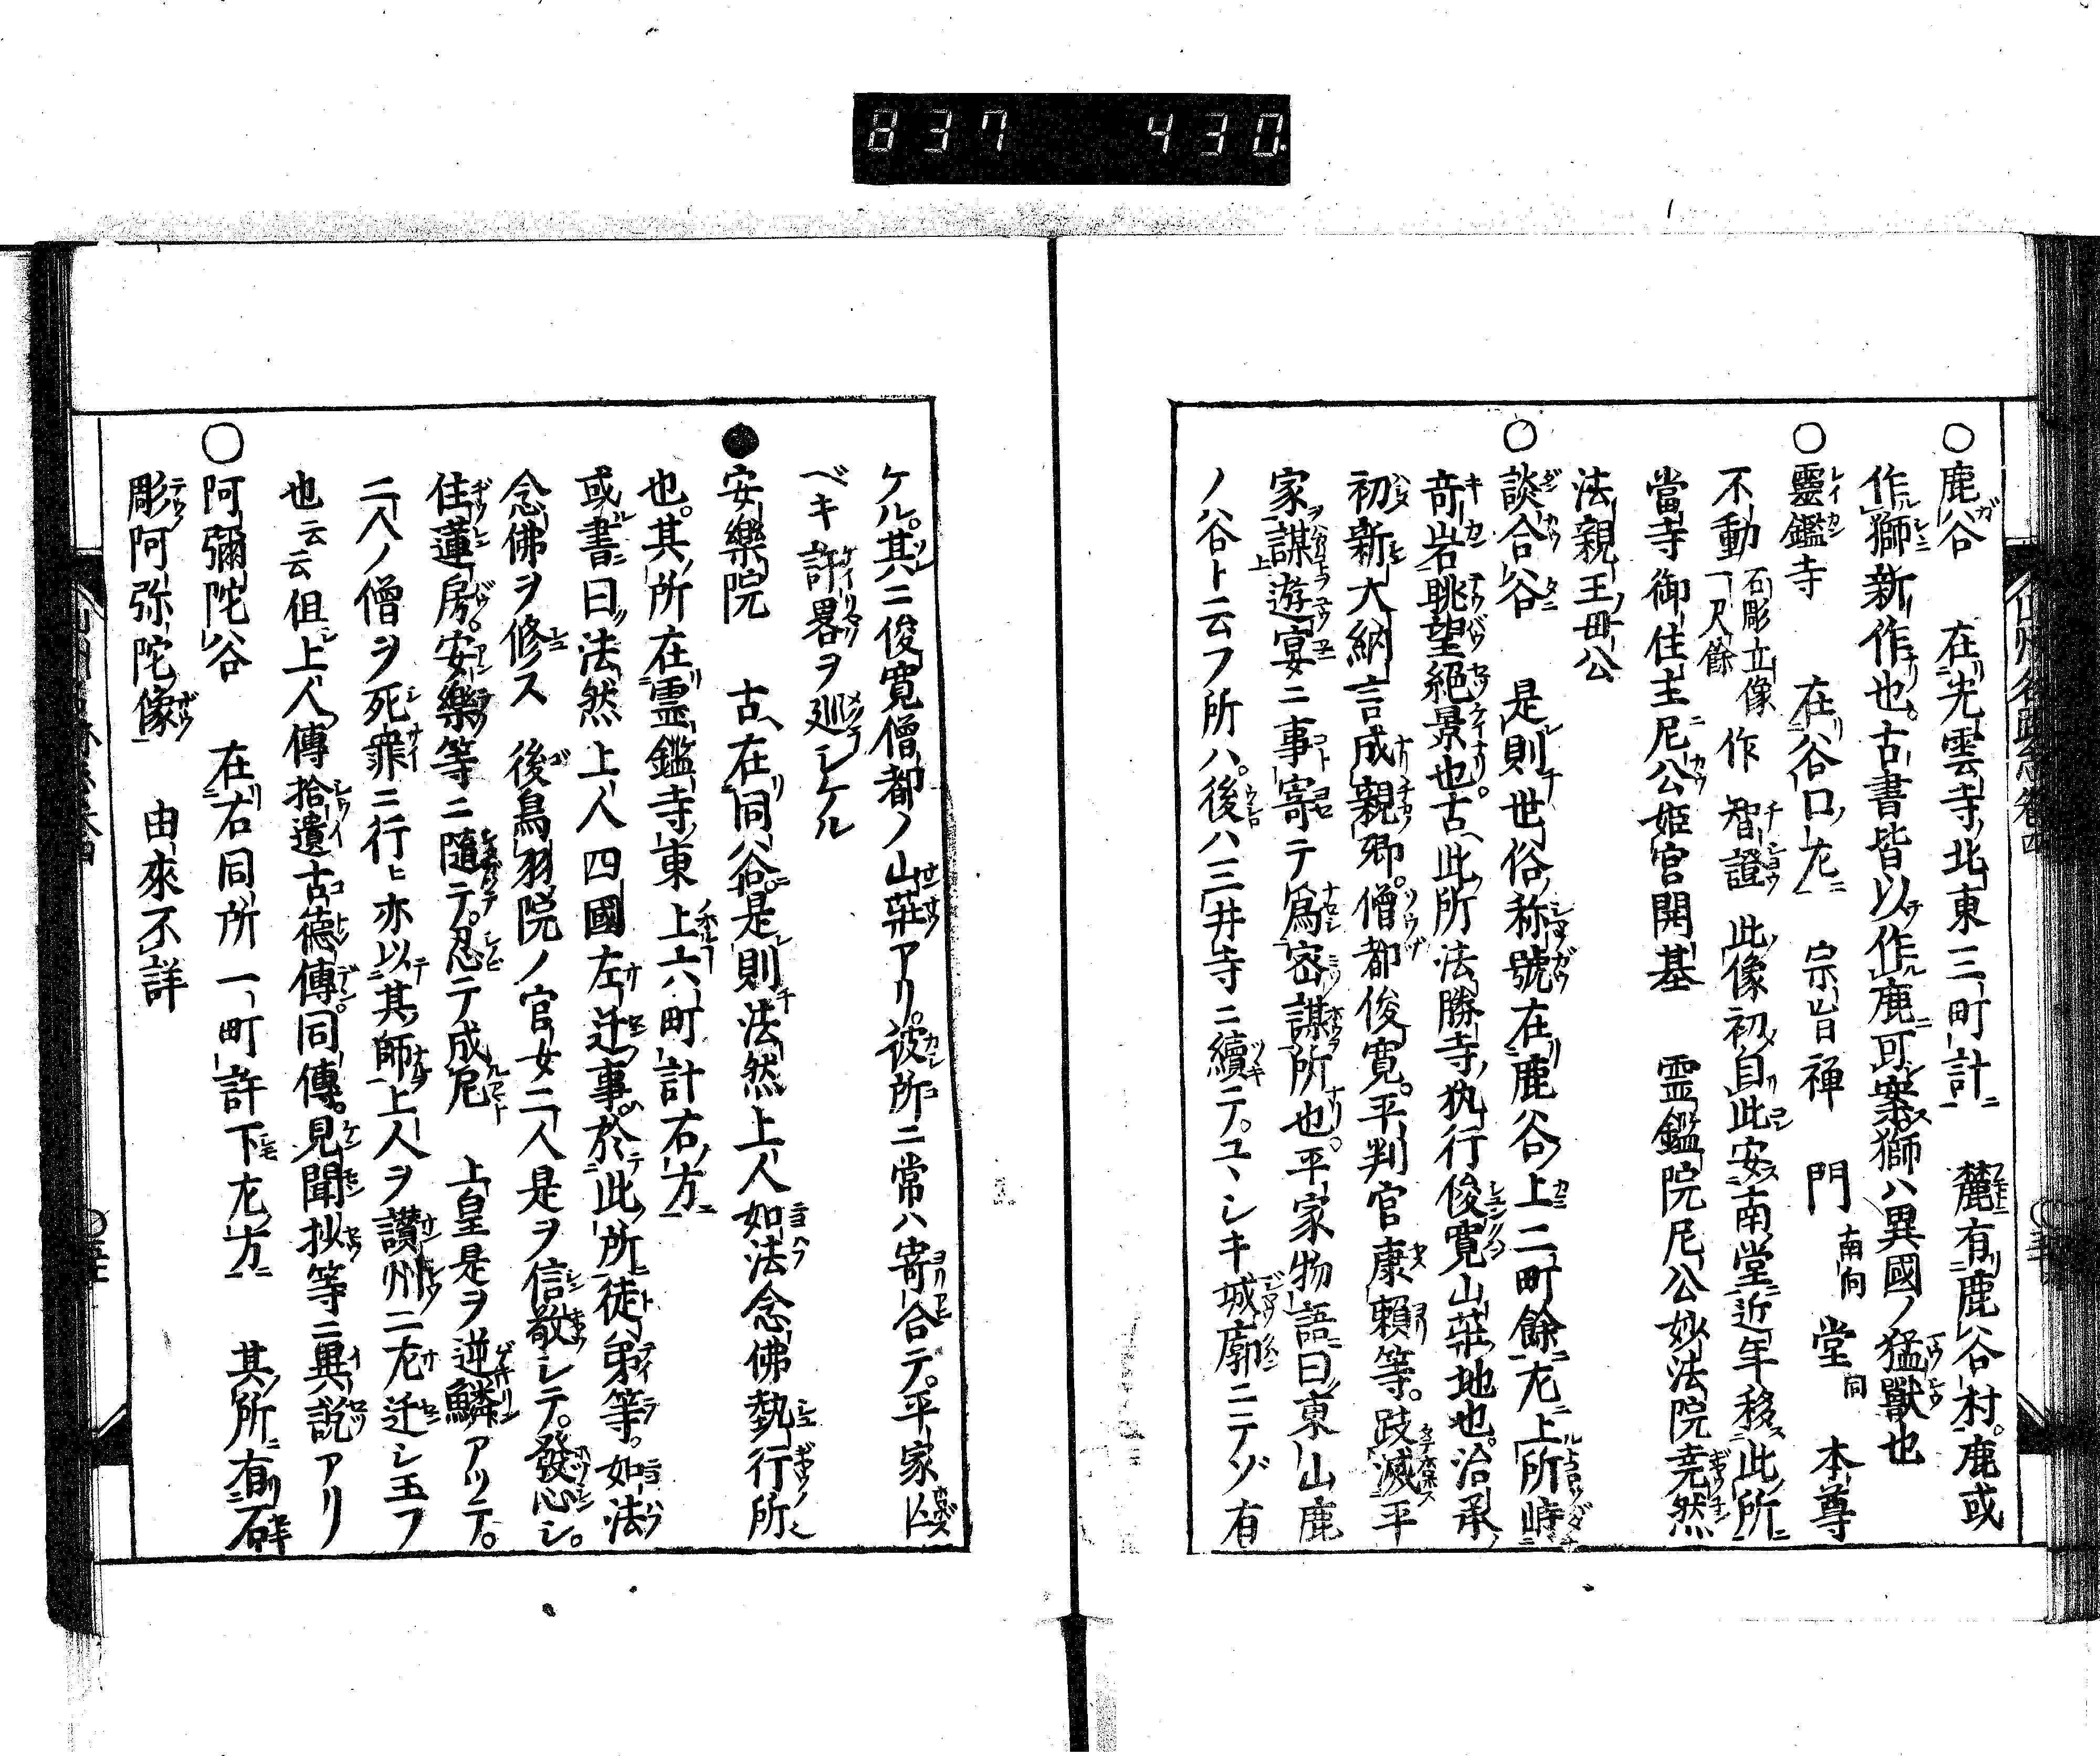 837 430
○鹿谷 在光雲寺北東三町計 麓有鹿谷村。鹿或
作獅新作也。古書皆以作鹿可案。獅ハ異國ノ猛獸也
○靈鑑寺 在谷口左 宗旨禅 門南向 堂同 本尊
不動石彫立像一尺餘 作 智證 此像初自此安南堂近年移此所
當寺御住主尼公姫宮開基 霊鑑院尼公妙法院尭然
法親王毋公
○談合谷 是則世俗称號在鹿谷上二町餘左上所峙
奇岩眺望絕景也。古此所法勝寺執行俊寛山莊地也。治承
初新大納言成親卿。僧都俊寛。平判官康賴等。跂滅平
家謀遊宴ニ事寄テ爲密謀所也。平家物語曰東山鹿
ノ谷ト云フ所ハ。後ハ三井寺ニ續テ。ユヽシキ城廓ニテゾ有
ケル。其ニ俊寛僧都ノ山莊アリ。彼所ニ常ハ寄合テ。平家ト
ベキ計畧ヲ廻シケル
●安樂院 古在同谷。是則法然上人如法念佛執行所
也。其所在霊鑑寺東上六町計右方
或書曰法然上人四國左迁事。於此所徒弟等。如法
念佛ヲ修ス 後鳥羽院ノ官女二人是ヲ信敬シテ。發心シ。
住蓮房。安樂等ニ隨テ。忍テ成尼 上皇是ヲ逆鱗アリテ。
二人ノ僧ヲ死罪ニ行ヒ亦以其師上人ヲ讃州ニ左迁シ玉フ
也云云但上人傳拾遺古德傳。同傳。見聞抄等ニ異說アリ
○阿彌陀谷 在右同所一町許下左方 其所有石
彫阿弥陀像 由來不詳